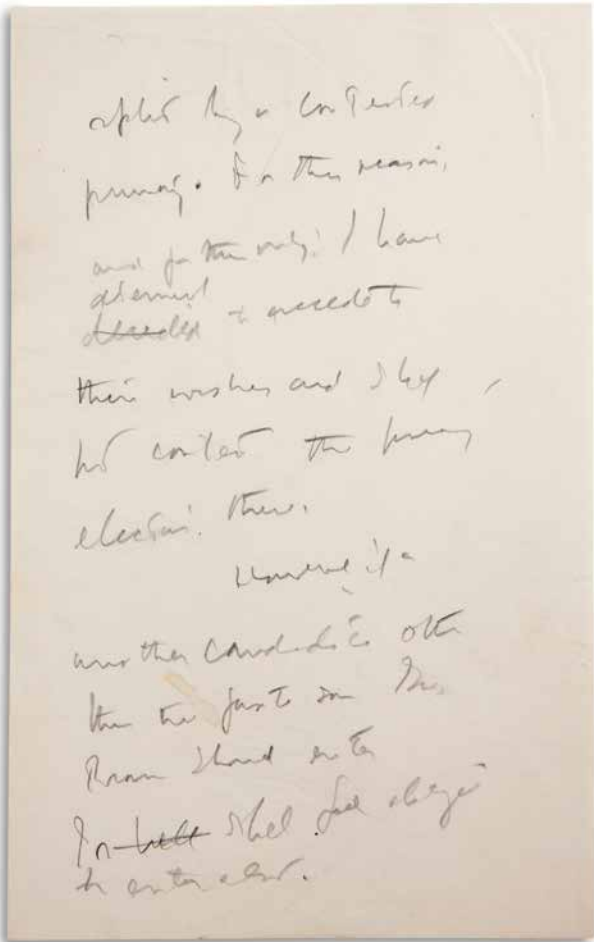 split by a contested
primary. For this reason,
and for this only, I have
determined
decided to accede to
their wishes and shall
not contest the primary
election there.
However if a
another candidate other
than the favorite son Gov.
Brown should enter
I shall feel obliged
to enter also.